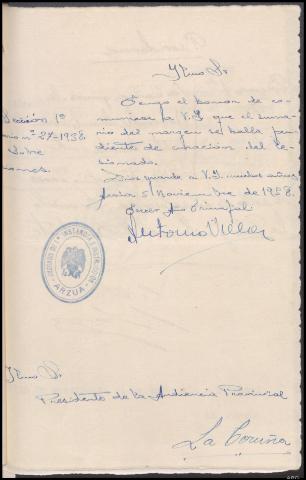 Iltmo Sr
Tengo el honor de co-
municar a V.I. que el suma-
rio del margen se halla pen-
diente de curación del le-
sionado.
Dios guarde a V.I. muchos años
Arzúa 5 Noviembre de 1938.
Tercer Año Triunfal
Antonio
Sección 1ª
nº 27-1938.
Sobre
JUZGADO DE 1ª INSTANCIA E INSTRUCCION
ARZUA
Iltmo Sr.
Presidente de la Audiencia Provincial
La Coruña